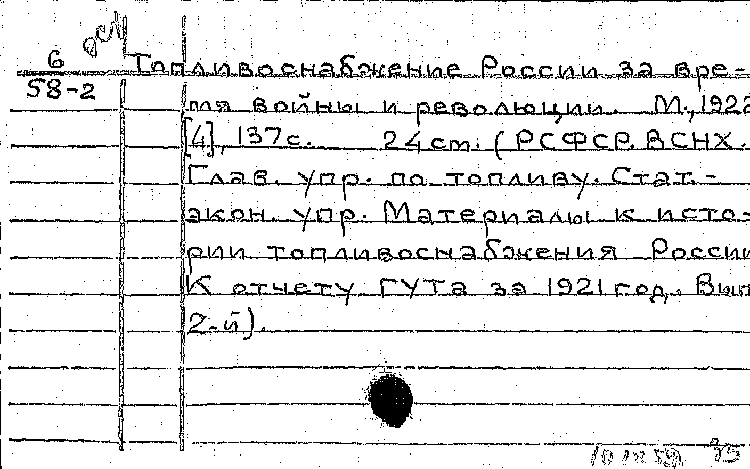 осн
6
58-2
Топливоснабжение России за вре-
мя войны и революции. М., 1922
[4], 137с. 24 cm. (РСФСР. ВСНХ.
Глав. упр. по топливу. Стат.-
экон. упр. Материалы к исто-
рии топливоснабжения России
К отчету ГУТа за 1921 год. Вып
2-й).
10 IX 59